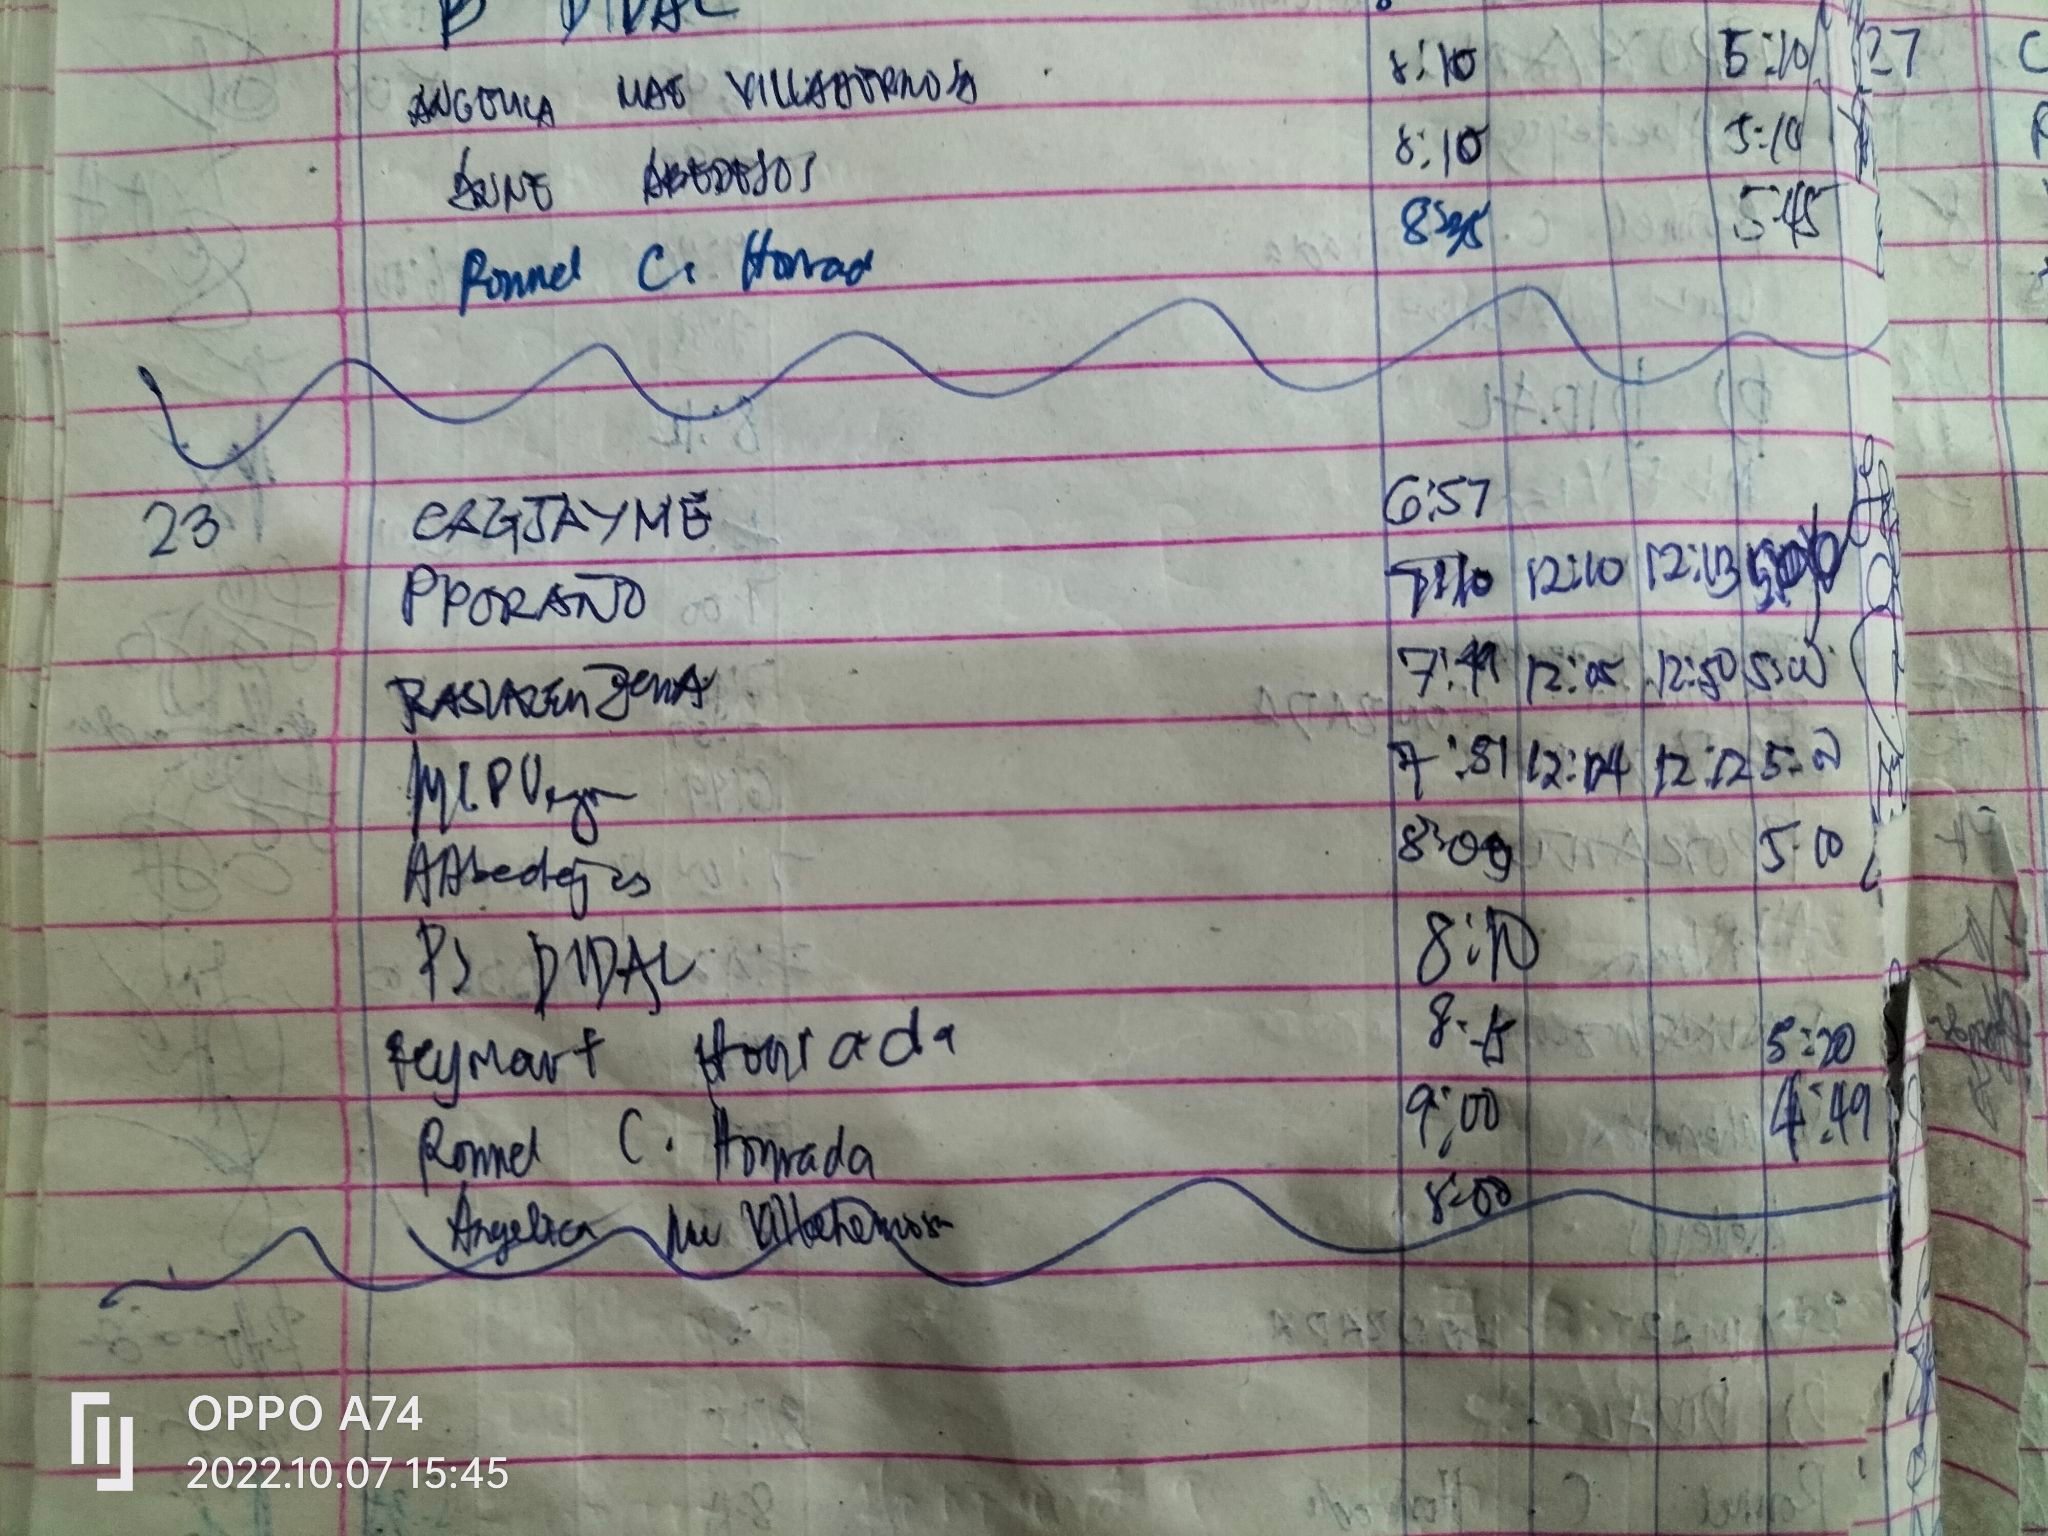 DIDAL
ANGELICA MAE VILLAHERMOSA 8:10 5:10 27
ANNE ABEDEJOS 8:10 5:10
Ronnel C. Honrad 5:45
23 CAGJAYME 6:57
PPORANJO 7:10 12:10 12:13 5:00
7:49 12:05 12:50 5:00
7:51 12:04 12:12
AAbedejos 8:09 5:00
PJ DIDAL 8:10
Reymart Honrada 8:15 5:20
Ronnel C. Honrada 9:00 4:49
Angelica Mae Villahermosa 8:00
OPPO A74
2022.10.07 15:45